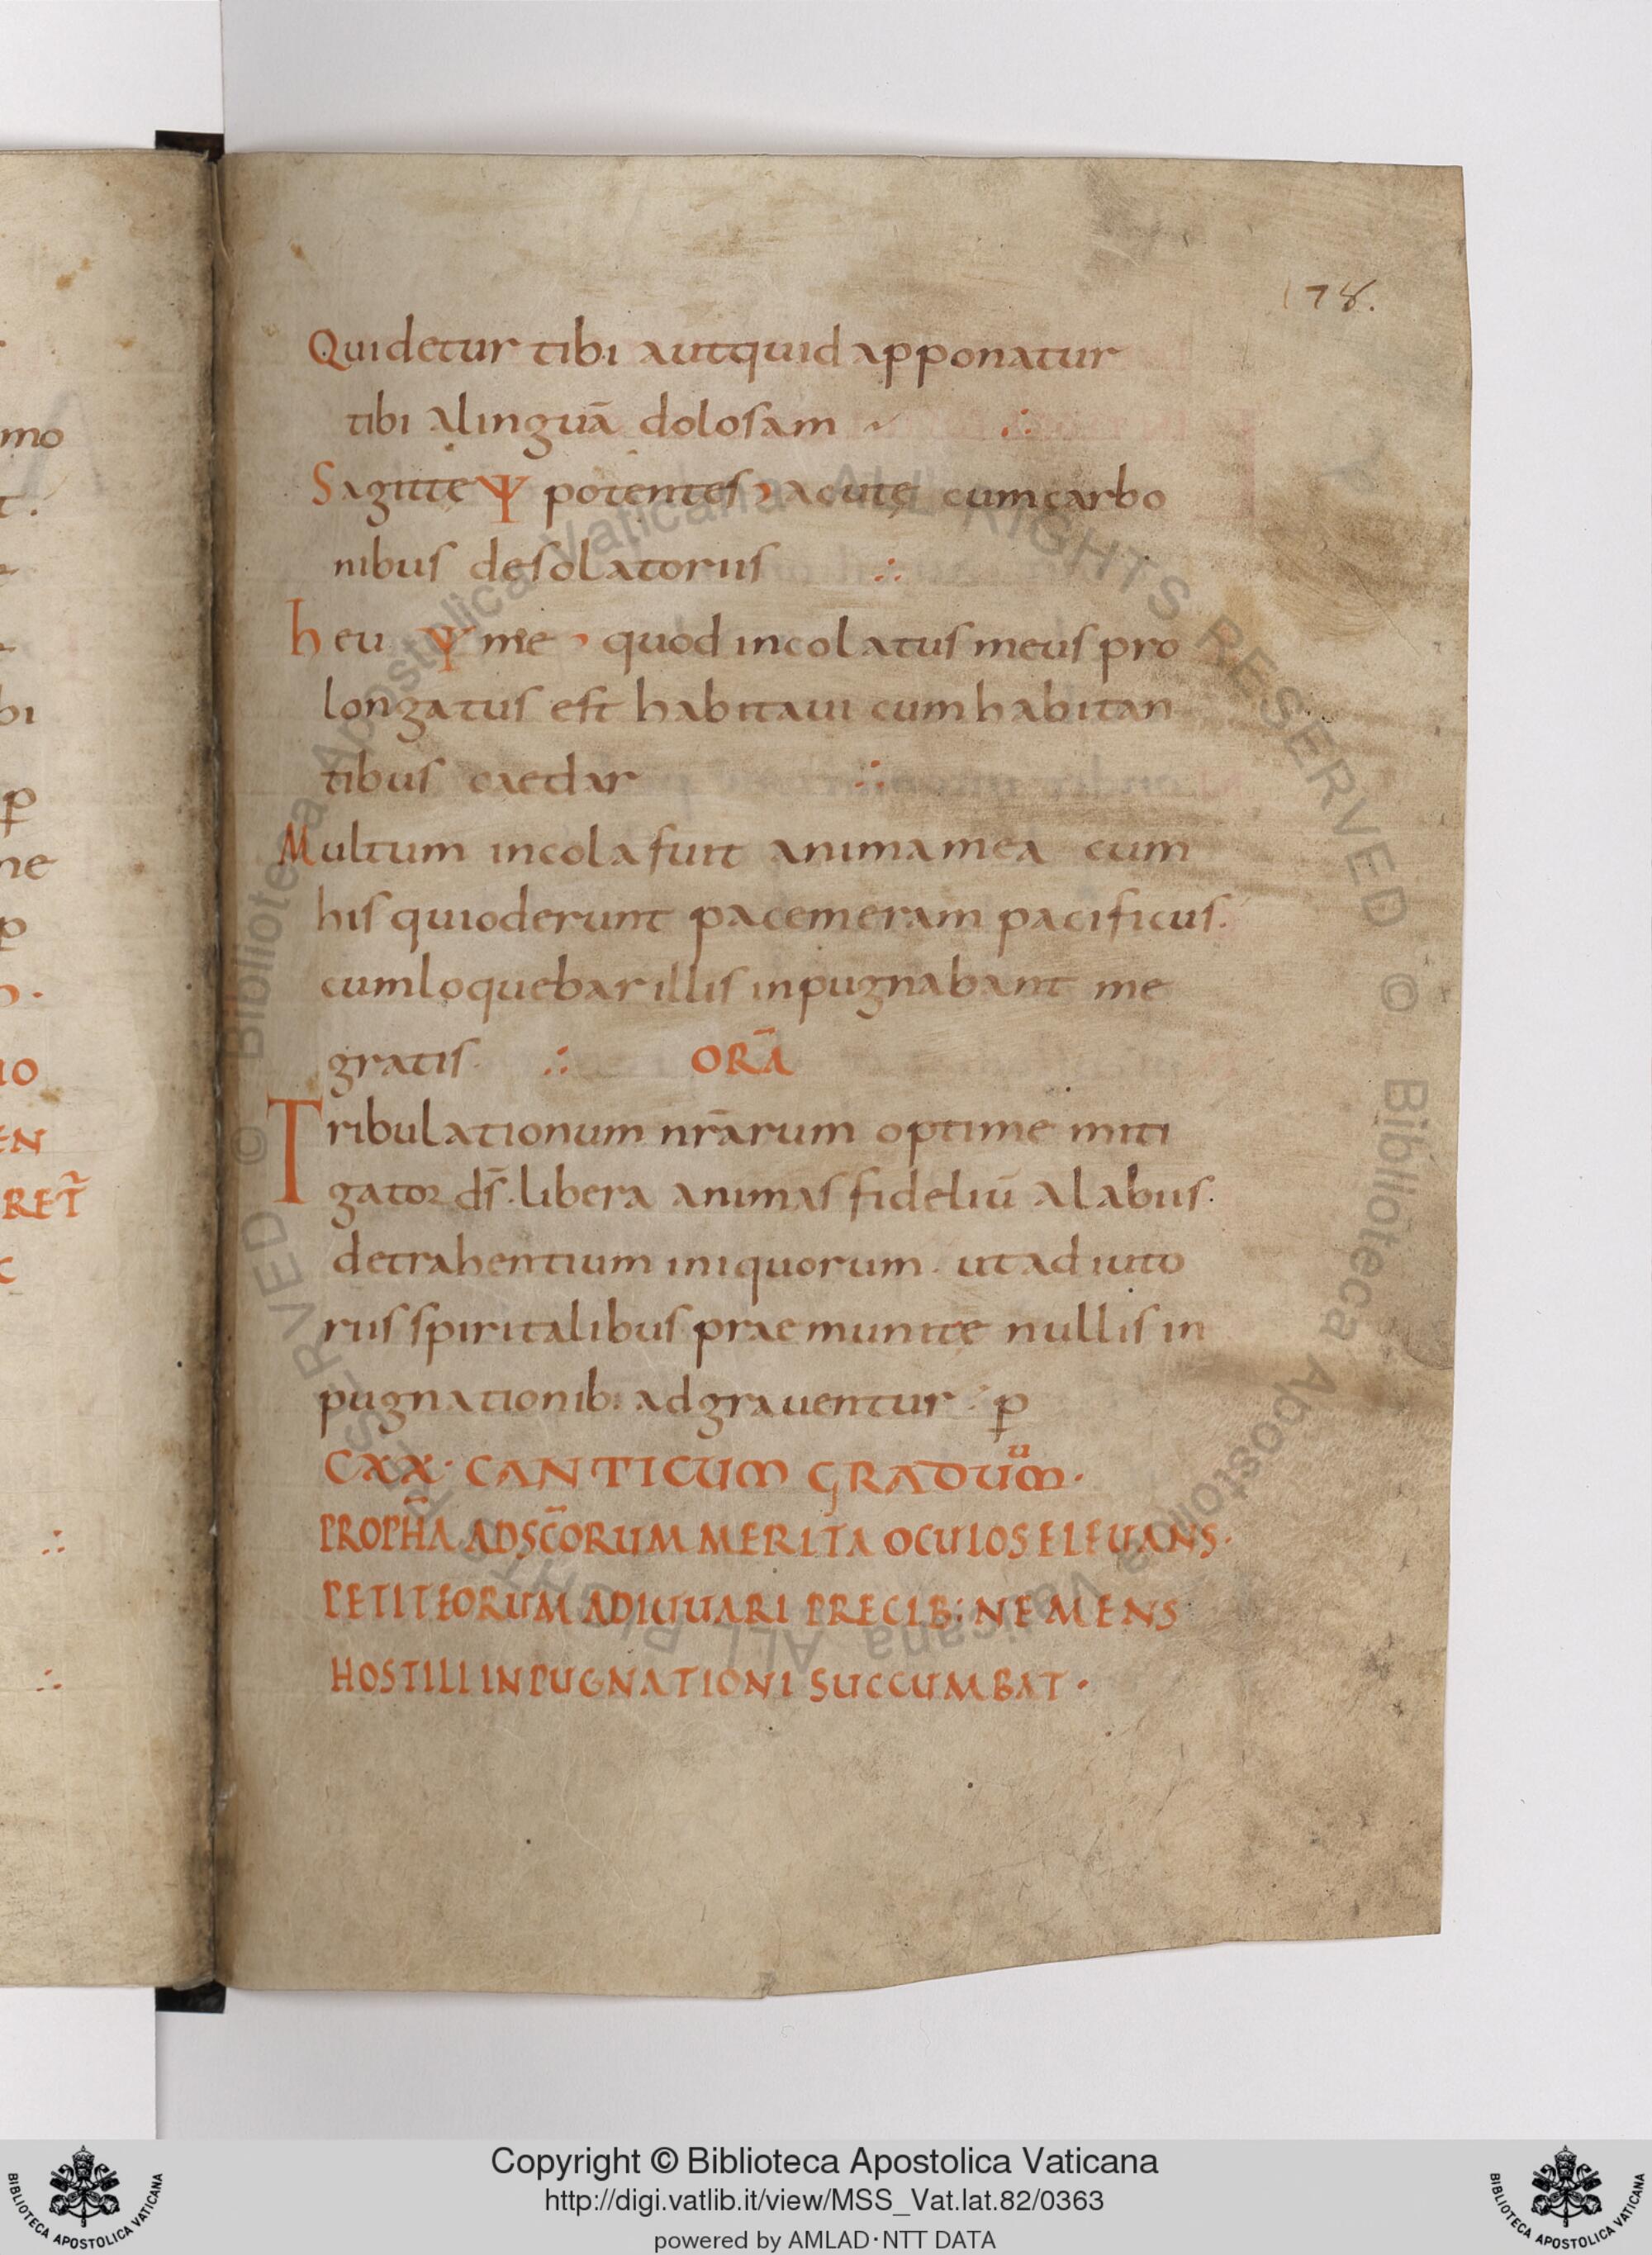 178.
Quidetur tibi autquid apponatur
tibi alinguā dolosam
Sagitte Ψ potentes acutę cumcarbo
nibus desolatoriis ∴
heu Ψ me quod incolatus meus pro
longatus est habitaui cumhabitan
tibus caedar ∴
Multum incola fuit anima mea cum
his quioderunt pacemeram pacificus.
cumloquebar illis inpugnabant me
gratis. ∴ ORĀ
Tribulationum nr̄arum optime miti
gator ds̄. libera animas fideliū alabiis.
detrahentium iniquorum. utadiuto
riis spiritalibus praemunitę nullis in
pugnationib: adgrauentur. p
CXX. CANTICUM GRADUUM.
PROPH̄A ADSC̄ORUM MERITA OCULOS ELEUANS.
PETITEORUM ADIUUARI PRECIB: NE MENS
HOSTILI INPUGNATIONI SUCCUMBAT.
mo
t.
bi
p
ne
p
IO
EN
RET̄
Copyright © Biblioteca Apostolica Vaticana
http://digi.vatlib.it/view/MSS_Vat.lat.82/0363
powered by AMLAD·NTT DATA
BIBLIOTECA APOSTOLICA VATICANA
BIBLIOTECA APOSTOLICA VATICANA
© Biblioteca Apostolica Vaticana ALL RIGHTS RESERVED © Biblioteca Apostolica Vaticana ALL RIGHTS RESERVED